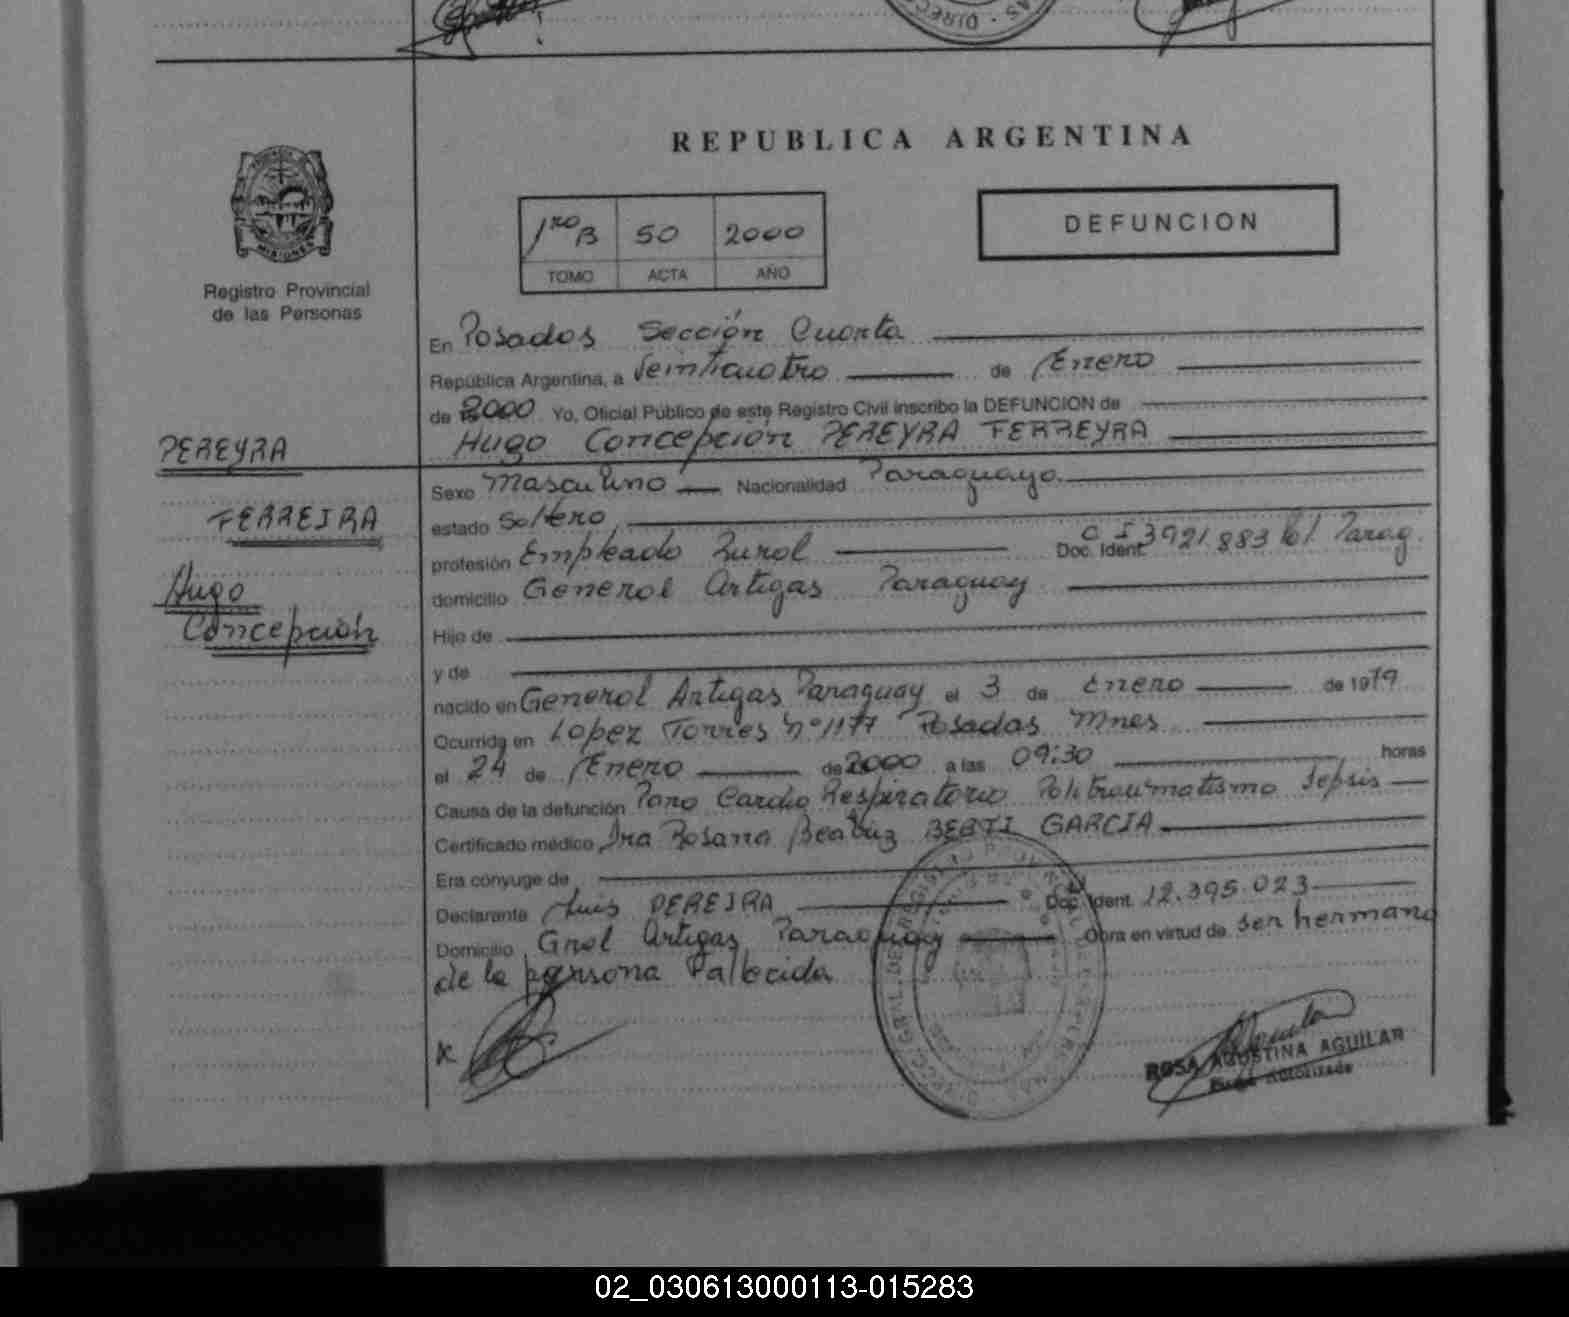 REPUBLICA ARGENTINA
1ro B 50 2000
TOMO ACTA AÑO
DEFUNCION
Registro Provincial
de las Personas
En Posadas Sección Cuarta
República Argentina, a Veinticuatro de Enero
de 2000 Yo, Oficial Público de este Registro Civil inscribo la DEFUNCION de
Hugo Concepción PEREYRA FERREYRA
PEREYRA
FERREIRA
Hugo
Concepción
Sexo Masculino Nacionalidad Paraguayo
estado Soltero
profesión Empleado Rural Doc. Ident. C I 3921883 Parag.
domicilio General Artigas Paraguay
Hijo de
y de
nacido en General Artigas Paraguay el 3 de Enero de 1979
Ocurrida en Lopez Torres nº 1177 Posadas Mnes
el 24 de Enero de 2000 a las 09:30 horas
Causa de la defunción Paro Cardio Respiratorio Politraumatismo Sepsis
Certificado médico Dra Rosana Beatriz BERTI GARCIA
Era cónyuge de
Declarante Luis PEREIRA Doc. Ident. 12.395.023
Domicilio Gral Artigas Paraguay Obra en virtud de ser hermano
de la persona fallecida
ROSA AGOSTINA AGUILAR
Autorizada
02_030613000113-015283